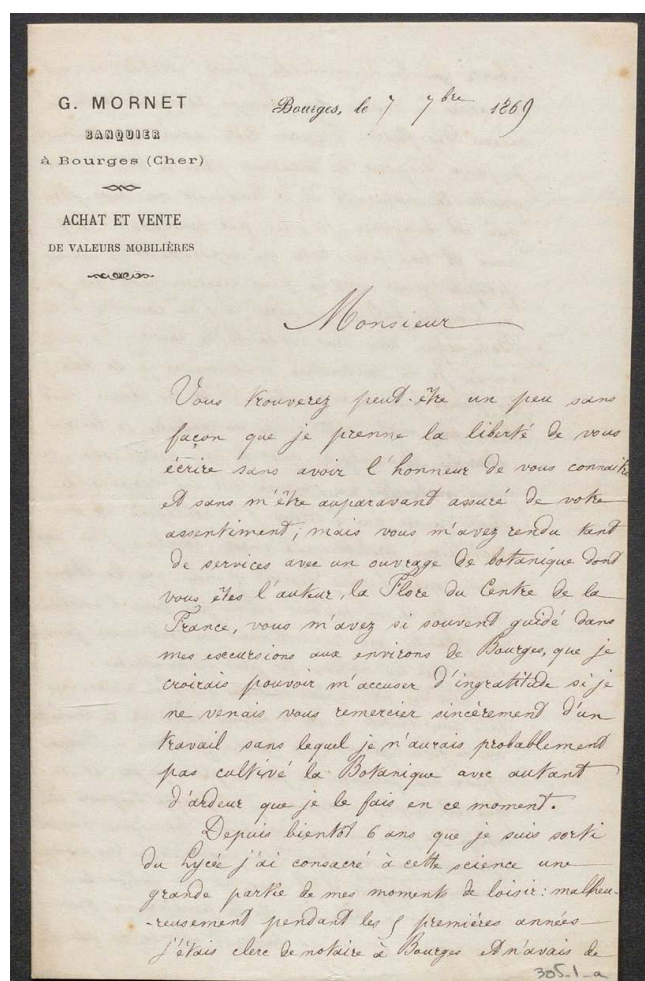 G. MORNET
BANQUIER
à Bourges (Cher)
ACHAT ET VENTE
DE VALEURS MOBILIÈRES
Bourges, le 7 7bre 1869
Monsieur
Vous trouverez peut-être un peu sans
façon que je prenne la liberté de vous
écrire sans avoir l'honneur de vous connaître
et sans m'être auparavant assuré de votre
assentiment; mais vous m'avez rendu tant
de services avec un ouvrage de botanique dont
vous êtes l'auteur, la Flore du Centre de la
France, vous m'avez si souvent guidé dans
mes excursions aux environs de Bourges, que je
croirais pouvoir m'accuser d'ingratitude si je
ne venais vous remercier sincèrement d'un
travail sans lequel je n'aurais probablement
pas cultivé la Botanique avec autant
d'ardeur que je le fais en ce moment.
Depuis bientôt 6 ans que je suis sorti
du Lycée j'ai consacré à cette science une
grande partie de mes moments de loisir: malheu-
-reusement pendant les 5 premières années
j'étais clerc de notaire à Bourges et n'avais de
305-1-a